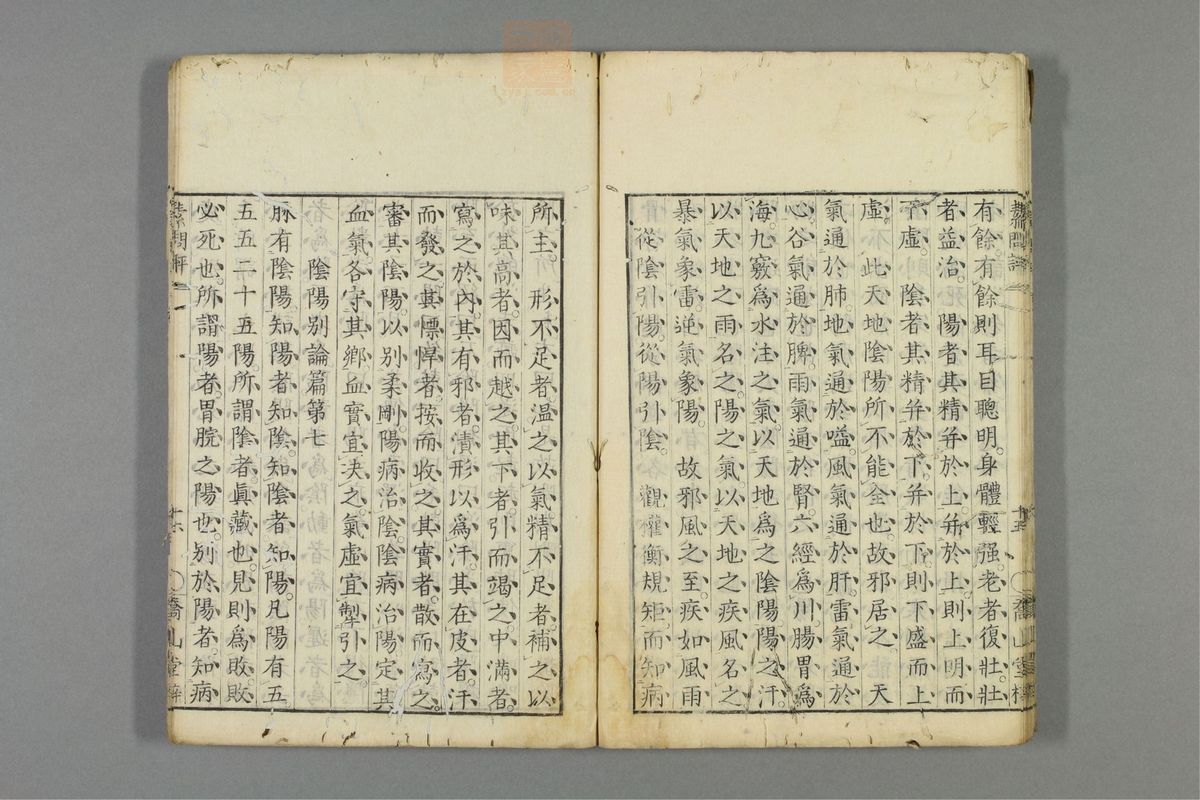 有餘有餘則耳目聰明。身體輕强。老者復壯。壯
者益治。陽者其精并於上并於上則上明而
下虛。陰者其精并於下。并於下則下盛而上
虛。此天地陰陽所不能全也。故邪居之 天
氣通於肺地氣通於嗌風氣通於肝雷氣通於
心谷氣通於脾雨氣通於腎六經爲川腸胃爲
海。九竅爲水注之氣以天地爲之陰陽陽之汗
以天地之雨名之陽之氣以天地之疾風名之
暴氣象雷。逆氣象陽。 故邪風之至疾如風雨
從陰引陽。從陽引陰。 觀權衡規矩而知病
所主。 形不足者温之以氣精不足者補之以
味其高者因而越之其下者引而竭之中滿者
寫之於內其有邪者漬形以爲汗其在皮者汗
而發之。其慓悍者。按而收之。其實者。散而寫之
審其陰陽以别柔剛。陽病治陰陰病治陽定其
血氣各守其鄉血實宜决之氣虛宜掣引之
陰陽别論篇第七
脉有陰陽知陽者知陰。知陰者知陽。凡陽有五
五五二十五陽。所謂陰者。眞藏也見則爲敗敗
必死也。所謂陽者。胃脘之陽也别於陽者。知病
素問
十五
喬山堂
素問
十六
喬山堂